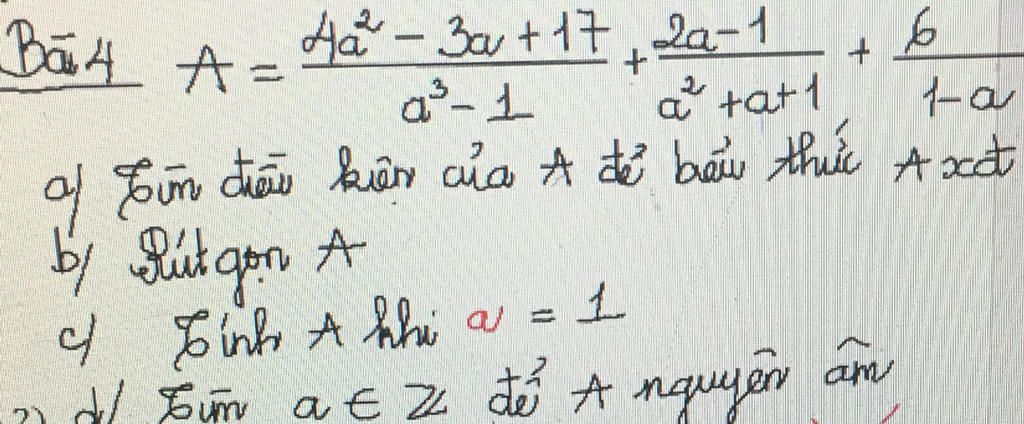 Bài 4 A = (4a² - 3a + 17)/(a³ - 1) + (2a - 1)/(a² + a + 1) + 6/(1 - a)
a) Tìm điều kiện của A để biểu thức A xđ
b) Rút gọn A
c) Tính A khi a = 1
2) d) Tìm a ∈ Z để A nguyên âm